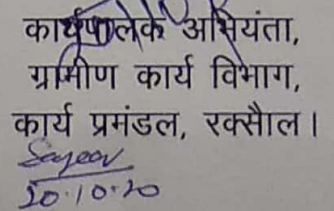 कार्यपालक अभियंता,
ग्रामीण कार्य विभाग,
कार्य प्रमंडल, रक्सौल।
20.10.20